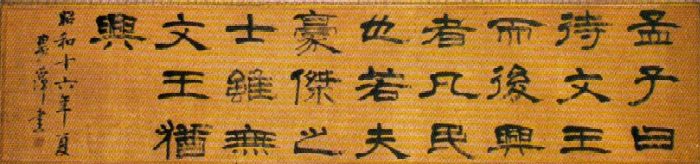 孟子曰
待文王
而後興
者凡民
也若夫
豪傑之
士雖無
文王猶
興
昭和十六年夏